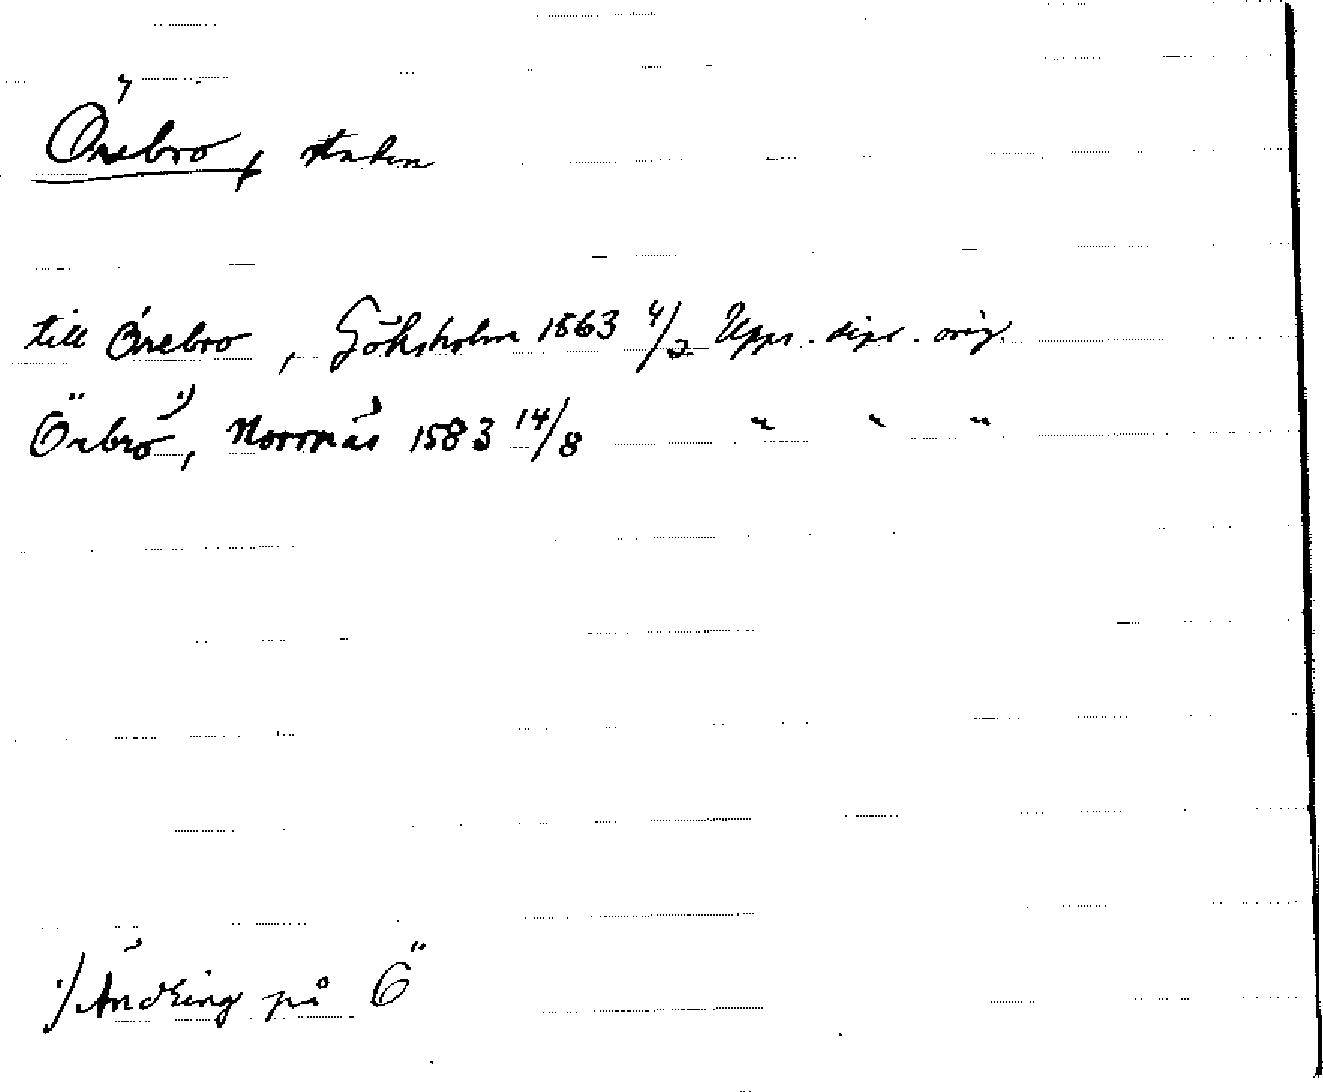 Örebro, staden
till Örebro, Göksholm 1563 4/2 Upps. dipl. orig.
Örbro ¹⁾, Norrnäs 1583 14/8 " " "
¹⁾ Ändring på Ö